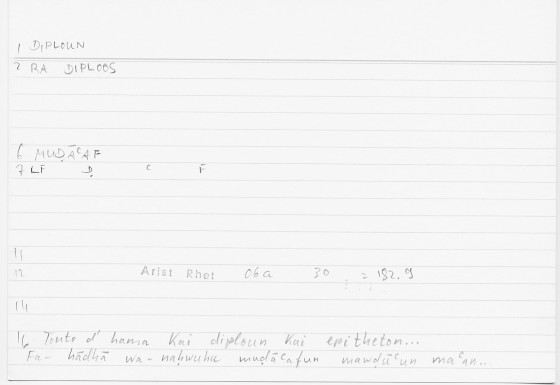 1 DIPLOUN
2 RA DIPLOOS
6 MUḌĀᶜAF
7 LF Ḍ ᶜ F
11
12 Arist Rhet 06a 30 = 182.9
14
16 Touto d' hama kai diploun kai epitheton...
Fa-hādhā wa-naḥwuhu muḍāᶜafun mawḍūᶜun maᶜan..